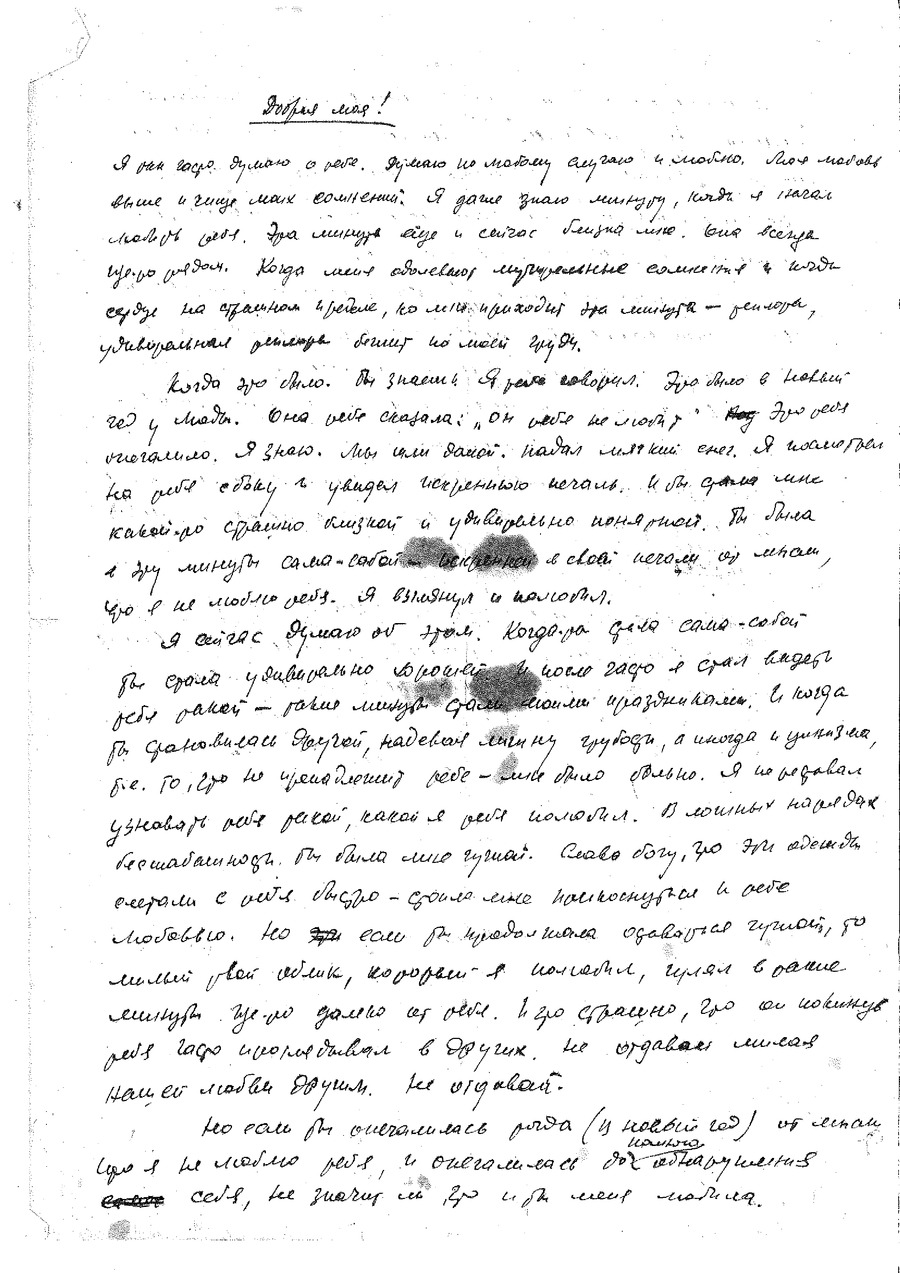 Добрая моя!
Я оч. часто думаю о тебе. Думаю по любому случаю и люблю. Моя любовь
выше и чище моих сомнений. Я даже знаю минуту, когда я начал
любить тебя. Эта минута еще и сейчас близка мне. Она всегда
где-то рядом. Когда меня одолевают мучительные сомнения и когда
сердце на страшном пределе, ко мне приходит эта минута — теплота,
удивительная теплота бежит по моей груди.
Когда это было. Ты знаешь. Я тебе говорил. Это было в новый
год у Люды. Она тебе сказала: „Он тебя не любит" Это тебя
опечалило. Я знаю. Мы шли домой. Падал мягкий снег. Я посмотрел
на тебя сбоку и увидел искреннюю печаль. И ты стала мне
какой-то страшно близкой и удивительно понятной. Ты была
в эту минуту сама-собой — искренней в своей печали от мысли,
что я не люблю тебя. Я взглянул и полюбил.
Я сейчас думаю об этом. Когда ты стала сама-собой
ты стала удивительно хорошей. И после часто я стал видеть
тебя такой — такие минуты стали моими праздниками. И когда
ты становилась другой, надевая личину грубости, а иногда и цинизма,
т.е. то, что не принадлежит тебе — мне было больно. Я переставал
узнавать тебя такой, какой я тебя полюбил. В ложных нарядах
бесшабашности ты была мне чужой. Слава богу, что эти одежды
слетали с тебя быстро — стоило мне прикоснуться к тебе
любовью. Но если ты продолжала одеваться чужой, то
милый твой облик, который я полюбил, гулял в такие
минуты где-то далеко от тебя. И это страшно, что он покинув
тебя часто проглядывал в других. Не отдавай милая
нашей любви другим. Не отдавай.
Но если ты опечалилась тогда (в новый год) от мысли
что я не люблю тебя, и опечалилась до полного обнаружения
себя, не значит ли это и ты меня любила.